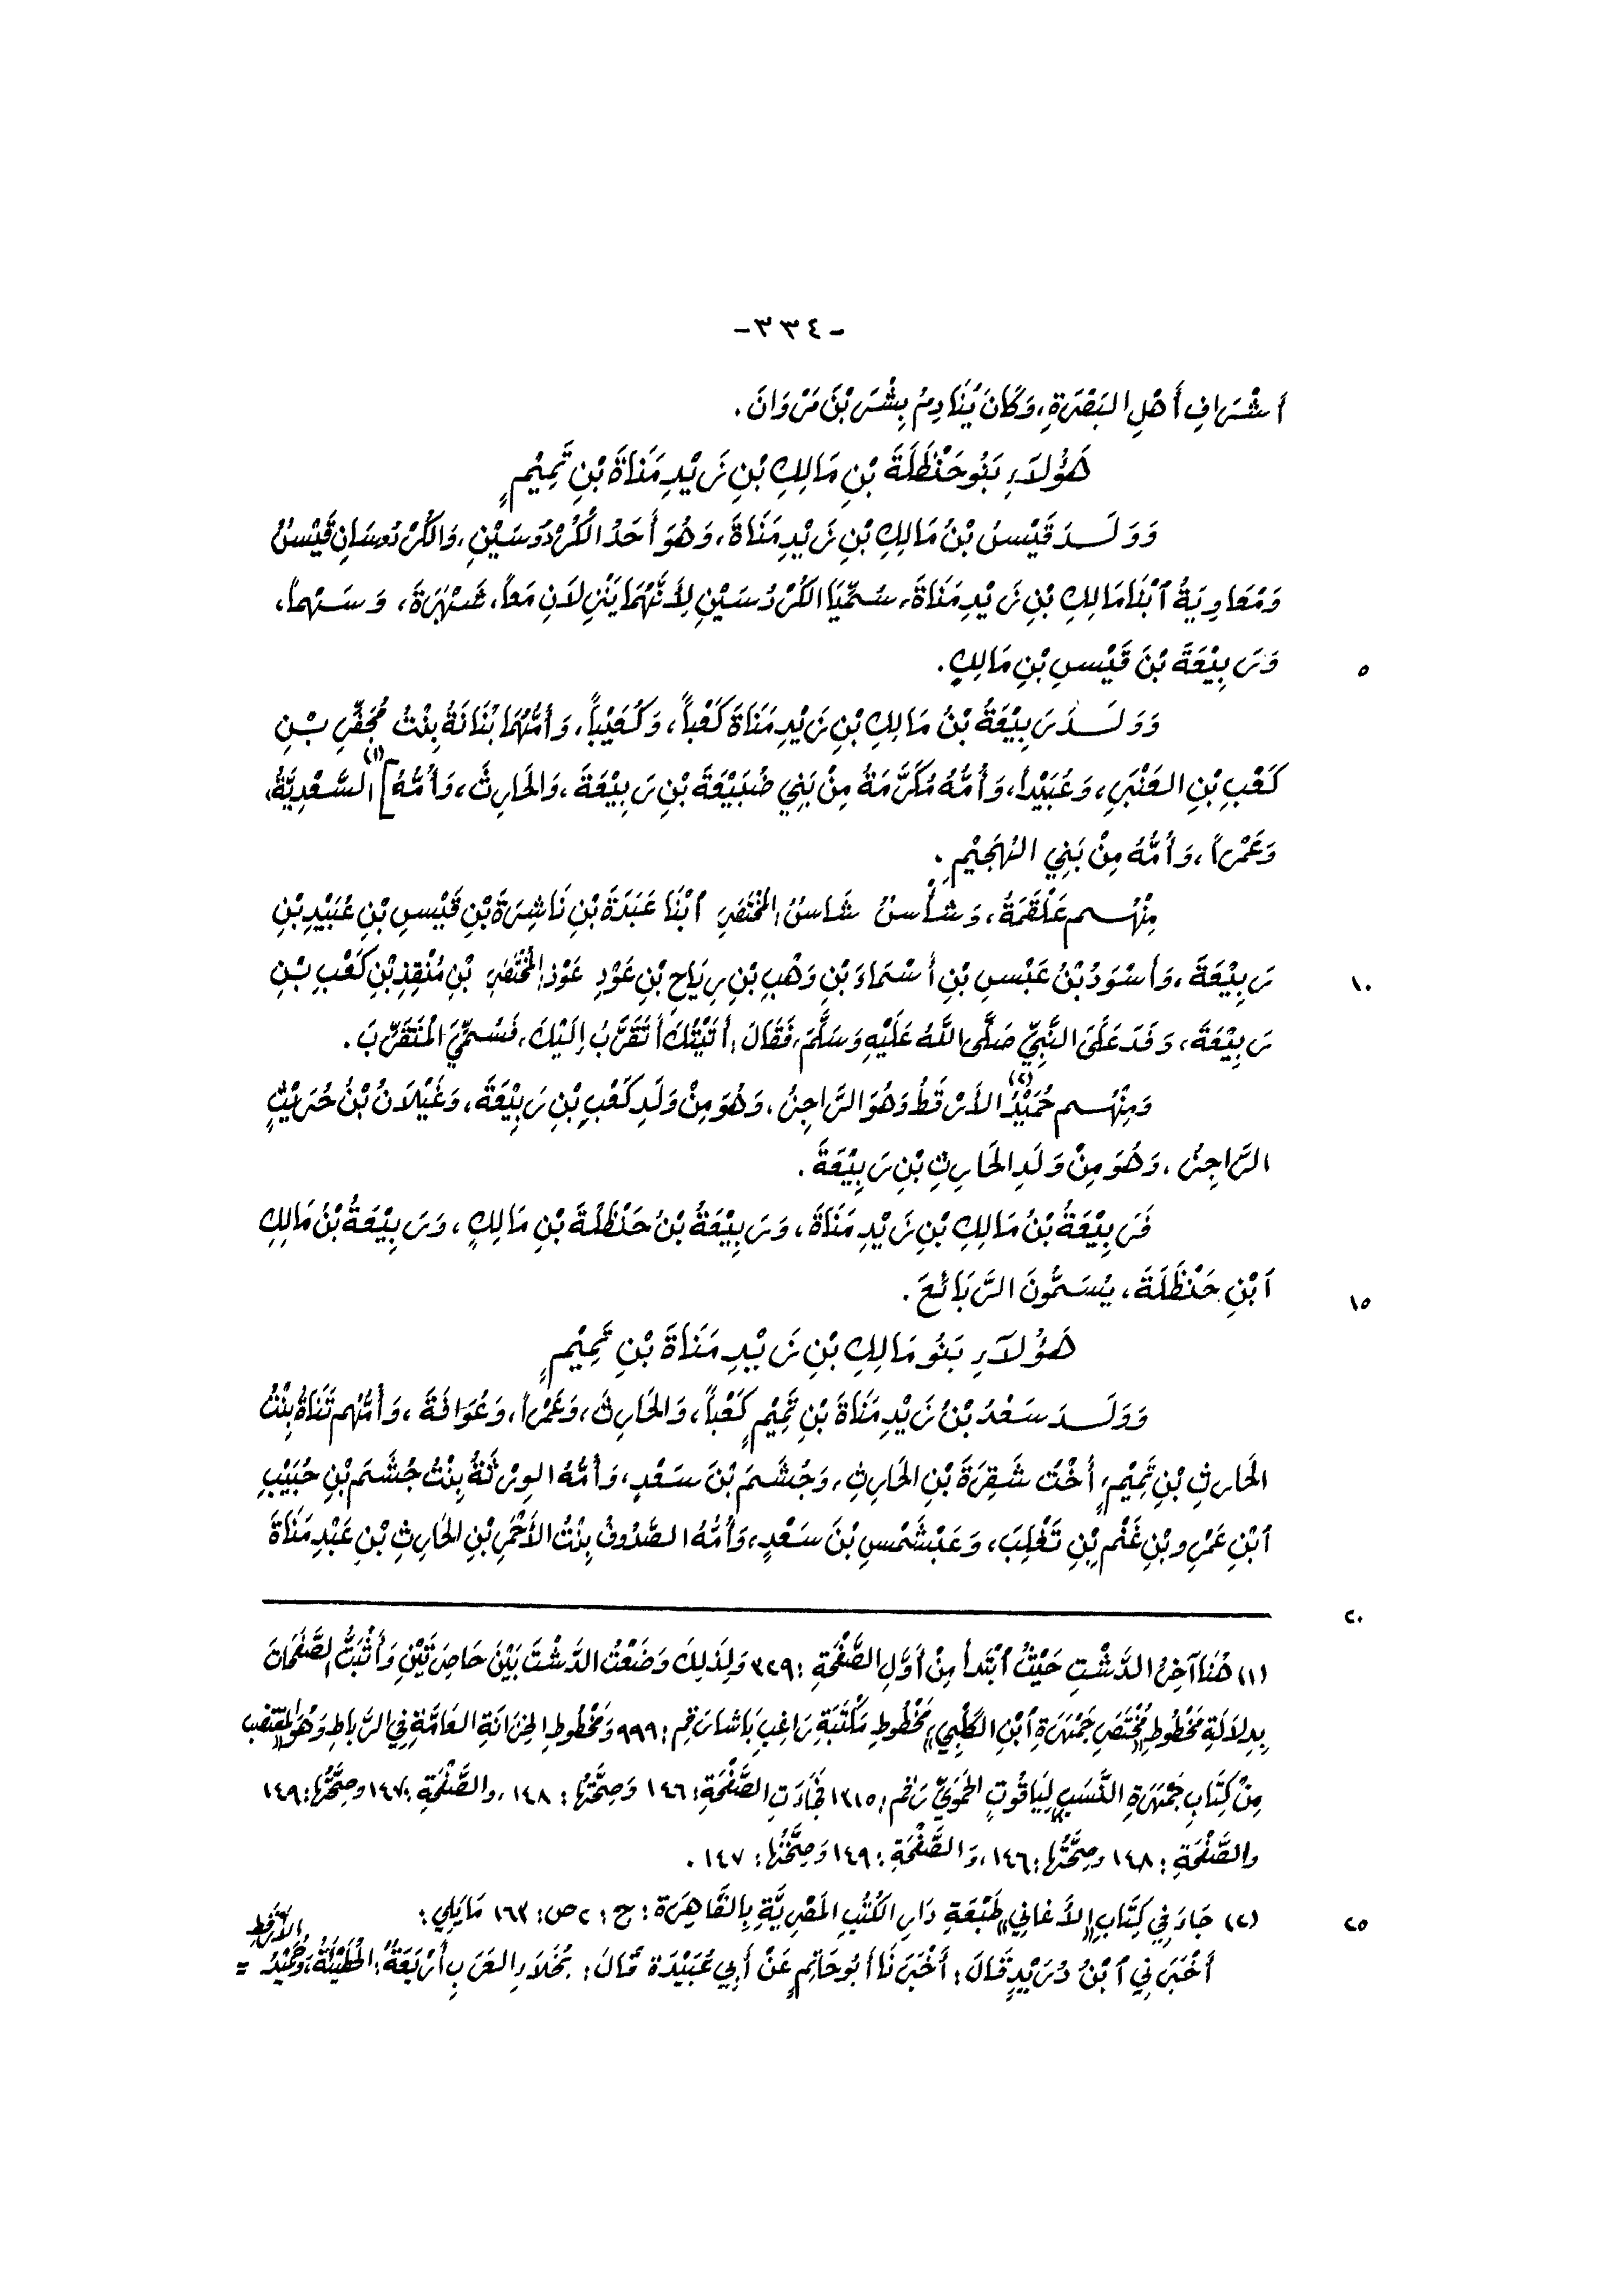 -٣٣٤-
أَشْرَافِ أَهْلِ البَصْرَةِ، وَكَانَ يُنَادِمُ بِشْرَ بْنَ مَرْوَانَ.
هَؤُلَاءِ بَنُو حَنْظَلَةَ بْنِ مَالِكِ بْنِ زَيْدِ مَنَاةَ بْنِ تَمِيْمٍ
وَوَلَدَ قَيْسُ بْنُ مَالِكِ بْنِ زَيْدِ مَنَاةَ، وَهُوَ أَحَدُ الكُرْدُوسَيْنِ، وَالكُرْدُوسَانِ قَيْسُ
وَمُعَاوِيَةُ ٱبْنَا مَالِكِ بْنِ زَيْدِ مَنَاةَ، سُمِّيَا الكُرْدُسَيْنِ لِأَنَّهُمَا يَنْزِلَانِ مَعاً، شَهْرَةَ، وَسَهْماً،
وَرَبِيْعَةَ بْنَ قَيْسِ بْنِ مَالِكٍ.
٥
وَوَلَدَ رَبِيْعَةُ بْنُ مَالِكِ بْنِ زَيْدِ مَنَاةَ كَعْباً، وَكُعَيْباً، وَأُمُّهُمَا بُنَانَةُ بِنْتُ مُجَفِّرِ بْنِ
كَعْبِ بْنِ العَنْبَرِ، وَعُبَيْداً، وَأُمُّهُ مُكَرَّمَةُ مِنْ بَنِي ضُبَيْعَةَ بْنِ رَبِيْعَةَ، وَالحَارِثَ، وَأُمُّهُ](١) السَّعْدِيَّةُ،
وَعَمْراً، وَأُمُّهُ مِنْ بَنِي الهُجَيْمِ.
مِنْهُم عَلْقَمَةُ، وَشَأْسُ شَاسُ: المُخْتَصَرِ ٱبْنَا عَبَدَةَ بْنِ نَاشِرَةَ بْنِ قَيْسِ بْنِ عُبَيْدِ بْنِ
رَبِيْعَةَ، وَأَسْوَدُ بْنُ عَبْسِ بْنِ أَسْمَاءَ بْنِ وَهْبِ بْنِ رِيَاحِ بْنِ عَوْدِ عَوْذ: المُخْتَصَرِ بْنِ مُنْقِذِ بْنِ كَعْبِ بْنِ
١٠
رَبِيْعَةَ، وَفَدَ عَلَى النَّبِيِّ صَلَّى اللَّهُ عَلَيْهِ وَسَلَّمَ، فَقَالَ: أَتَيْتُكَ أَتَقَرَّبُ إِلَيْكَ، فَسُمِّيَ المُتَقَرِّبَ.
وَمِنْهُم حُمَيْدُ(٢) الأَرْقَطُ وَهُوَ الرَّاجِزُ، وَهُوَ مِنْ وَلَدِ كَعْبِ بْنِ رَبِيْعَةَ، وَغَيْلَانُ بْنُ حُرَيْثٍ
الرَّاجِزُ، وَهُوَ مِنْ وَلَدِ الحَارِثِ بْنِ رَبِيْعَةَ.
فَرَبِيْعَةُ بْنُ مَالِكِ بْنِ زَيْدِ مَنَاةَ، وَرَبِيْعَةُ بْنُ حَنْظَلَةَ بْنِ مَالِكٍ، وَرَبِيْعَةُ بْنُ مَالِكِ
ٱبْنِ حَنْظَلَةَ، يُسَمُّونَ الرَّبَائِعَ.
١٥
هَؤُلَآءِ بَنُو مَالِكِ بْنِ زَيْدِ مَنَاةَ بْنِ تَمِيْمٍ
وَوَلَدَ سَعْدُ بْنُ زَيْدِ مَنَاةَ بْنِ تَمِيْمٍ كَعْباً، وَالحَارِثَ، وَعَمْراً، وَعُوَافَةَ، وَأُمُّهُم تَنَاةُ بِنْتُ
الحَارِثِ بْنِ تَمِيْمٍ، أُخْتُ شَقِرَةَ بْنِ الحَارِثِ، وَجُشَمَ بْنَ سَعْدٍ، وَأُمُّهُ الوِرْثَةُ بِنْتُ جُشَمَ بْنِ حُبَيْبِ
ٱبْنِ عَمْرِو بْنِ غَنْمِ بْنِ تَغْلِبَ، وَعَبْشَمْسِ بْنَ سَعْدٍ، وَأُمُّهُ الصَّدُوفُ بِنْتُ الأَحْمَرِ بْنِ الحَارِثِ بْنِ عَبْدِ مَنَاةَ
٢٠
(١) هُنَا آخِرُ الدَّشْتِ حَيْثُ ٱبْتَدأَ مِنْ أَوَّلِ الصَّفْحَةِ: ٣٢٩ وَلِذَلِكَ وَضَعْتُ الدَّشْتَ بَيْنَ حَاصِرَتَيْنِ وَأَثْبَتُّ الصَّفَحَاتَ
بِدِلَالَةِ مَخْطُوطِ «مُخْتَصَرِ جَمْهَرَةِ ٱبْنِ الكَلْبِي» مَخْطُوطِ مَكْتَبَةِ رَاغِبَ بَاشَا رَقم: ٩٩٩ وَمَخْطُوطِ الخِزَانَةِ العَامَّةِ فِي الرِّبَاطِ وَهُوَ «المقتضب
مِنْ كِتَابِ جَمْهَرَةِ النَّسَبِ» لِيَاقُوتٍ الحَمَوِيِّ رَقم: ١٣١٥ فَجَاءَتِ الصَّفْحَةِ: ١٤٦ وَصِحَّتُهَا: ١٤٨، والصَّفْحَةِ: ١٤٧ وصِحَّتُهَا: ١٤٩
والصَّفْحَةِ: ١٤٨ وصِحَّتُهَا: ١٤٦، وَالصَّفْحَةِ: ١٤٩ وَصِحَّتُهَا: ١٤٧.
(٢) جَاءَ فِي كِتَابِ «الأَغَانِي» طَبْعَةِ دَارِ الكُتُبِ المَصْرِيَّةِ بِالقَاهِرَة: ج: ٢ ص: ١٦٣ مَايَلِي:
٢٥
أَخْبَرَنِي ٱبْنُ دُرَيْدٍ قَالَ: أَخْبَرَنَا أَبُو حَاتِمٍ عَنْ أَبِي عُبَيْدَة قَالَ: بُخَلَاءِ العَرَبِ أَرْبَعَةٌ: الحُطَيْئَةُ، وَحُمَيْدُ الأَرْقَط =